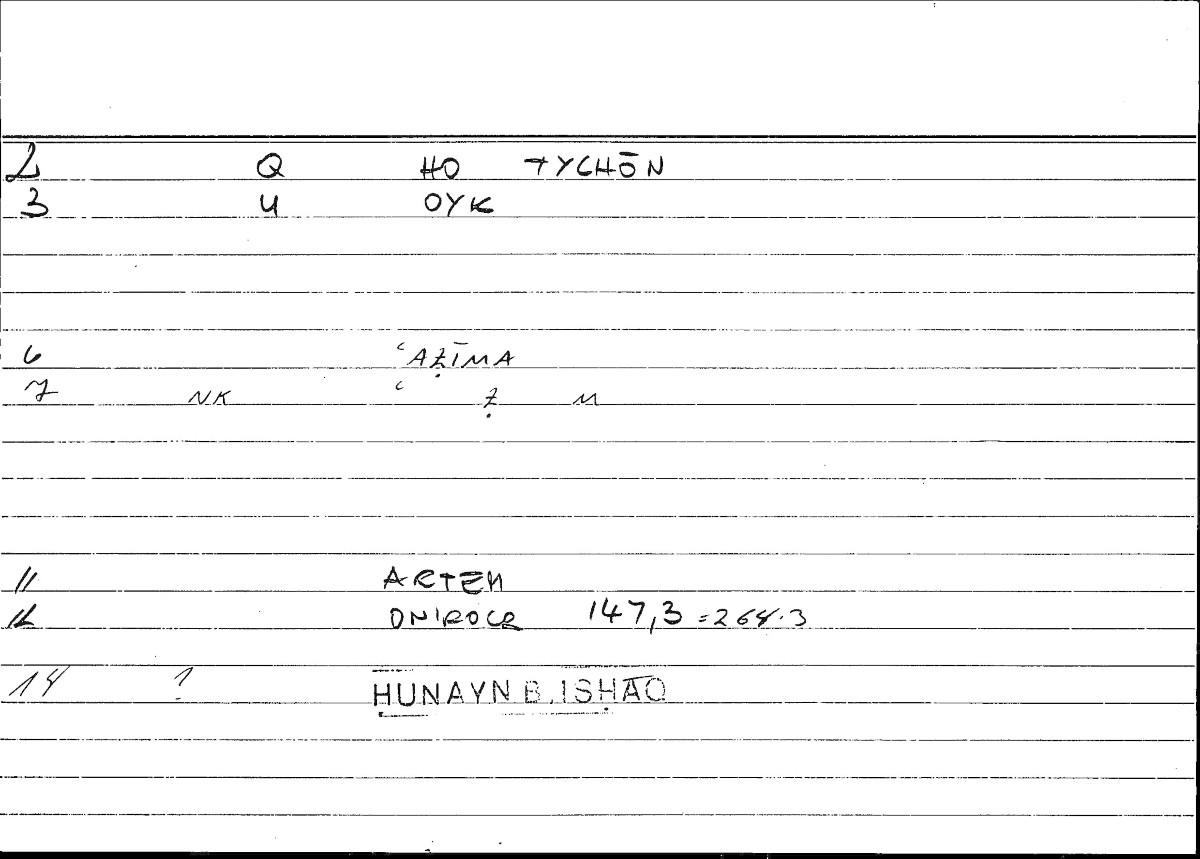 2 Q HO TYCHŌN
3 U OYK
6 ʿAẒĪMA
7 NK ʿ Ẓ M
11 ARTEM
12 ONIROCR 147,3 = 264.3
14 ? ḤUNAYN B. ISḤĀQ